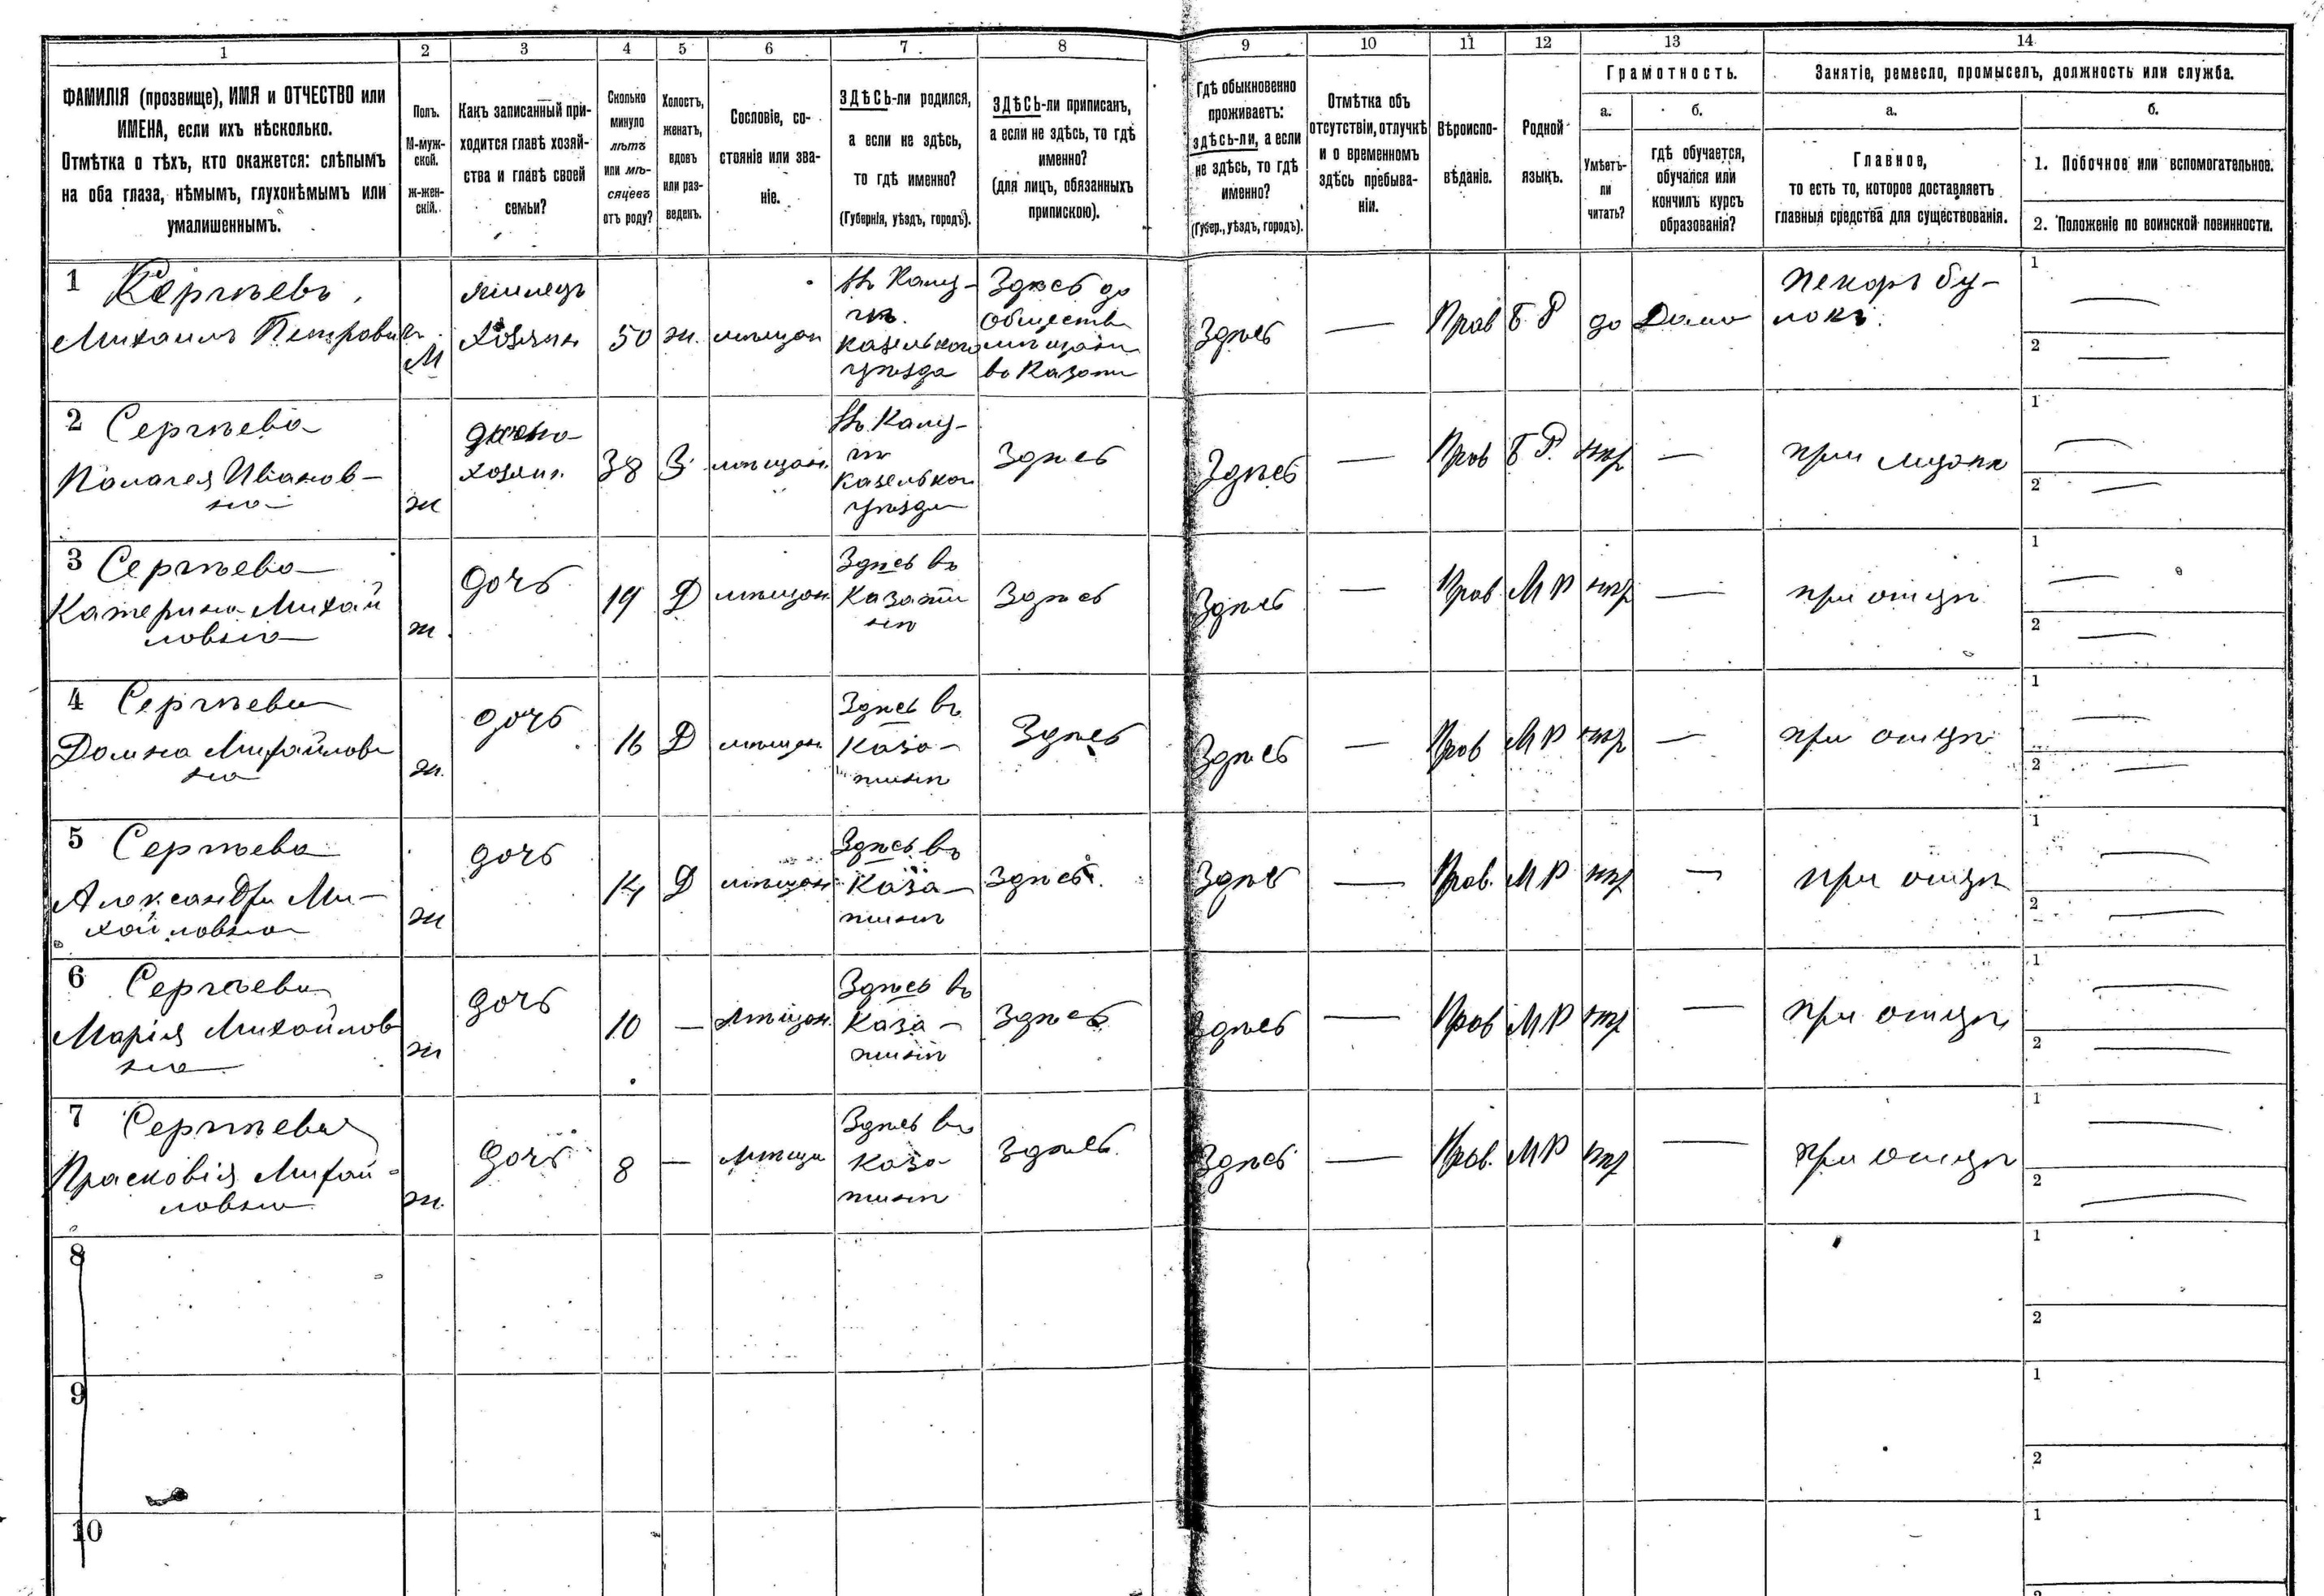 1 2 3 4 5 6 7 8 9 10 11 12 13 14
ФАМИЛІЯ (прозвище), ИМЯ и ОТЧЕСТВО или
ИМЕНА, если ихъ нѣсколько.
Отмѣтка о тѣхъ, кто окажется: слѣпымъ
на оба глаза, нѣмымъ, глухонѣмымъ или
умалишеннымъ.
Полъ.
М-муж-
ской.
ж-жен-
скій.
Какъ записанный при-
ходится главѣ хозяй-
ства и главѣ своей
семьи?
Сколько
минуло
лѣтъ
или мѣ-
сяцевъ
отъ роду?
Холостъ,
женатъ,
вдовъ
или раз-
веденъ.
Сословіе, со-
стояніе или зва-
ніе.
ЗДѢСЬ-ли родился,
а если не здѣсь,
то гдѣ именно?
(Губернія, уѣздъ, городъ).
ЗДѢСЬ-ли приписанъ,
а если не здѣсь, то гдѣ
именно?
(для лицъ, обязанныхъ
припискою).
Гдѣ обыкновенно
проживаетъ:
здѣсь-ли, а если
не здѣсь, то гдѣ
именно?
(Губер., уѣздъ, городъ).
Отмѣтка объ
отсутствіи, отлучкѣ
и о временномъ
здѣсь пребыва-
ніи.
Вѣроиспо-
вѣданіе.
Родной
языкъ.
Грамотность.
а.
Умѣетъ-
ли
читать?
б.
гдѣ обучается,
обучался или
кончилъ курсъ
образованія?
Занятіе, ремесло, промыселъ, должность или служба.
а.
Главное,
то есть то, которое доставляетъ
главныя средства для существованія.
б.
1. Побочное или вспомогательное.
2. Положеніе по воинской повинности.
1
Михаилъ Петрович
М
хозяин
50
ж.
мѣщан
уѣзда
Здѣсь до
Обществ
мѣщан
Здѣсь
—
Прав
Б Р
до
Дома
Пекаръ бу-
локъ.
1 —
2 —
2 Сергѣева
Палагея Иванов-
на
ж
жена
хозяин.
38
З
мѣщан.
уѣзда
Здѣсь
Здѣсь
—
Прав
Б Р.
нѣт
—
при мужѣ
1 —
2 —
3 Сергѣева
Катерина Михай
ловна
ж.
дочь
19
Д
мѣщан.
Здѣсь въ
Казати
нѣ
Здѣсь
Здѣсь
—
Прав
М Р
нѣт
—
при отцѣ
1 —
2 —
4 Сергѣева
Домна Михайлов
на
ж.
дочь
16
Д
мѣщан.
Здѣсь въ
Каза-
тинѣ
Здѣсь
Здѣсь
—
Прав
М Р
нѣт
—
при отцѣ
1 —
2 —
5 Сергѣева
Александра Ми-
хайловна
ж
дочь
14
Д
мѣщан
Здѣсь въ
Каза-
тинѣ
Здѣсь.
Здѣсь
—
Прав.
М Р
нѣт
—
при отцѣ
1 —
2 —
6 Сергѣева
Марія Михайлов
на
ж
дочь
10
—
мѣщан.
Здѣсь въ
Каза-
тинѣ
Здѣсь
Здѣсь
—
Прав
М Р
нѣт
—
при отцѣ
1 —
2 —
7 Сергѣева
Прасковія Михай-
ловна
ж.
дочь
8
—
мѣща
Здѣсь въ
Каза
тинѣ
Здѣсь.
Здѣсь
—
Прав.
М Р
нѣт
—
при отцѣ
1 —
2 —
8
1
2
9
1
2
10
1